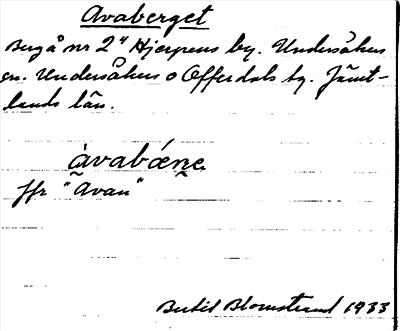 Avaberget
Berg å nr 2" Hjerpens by. Undersåkers
sn. Undersåkers o Offerdals tg. Jämt-
lands län.
àvabǽne
ffr "Avan"
Bertil Blomstrand 1933